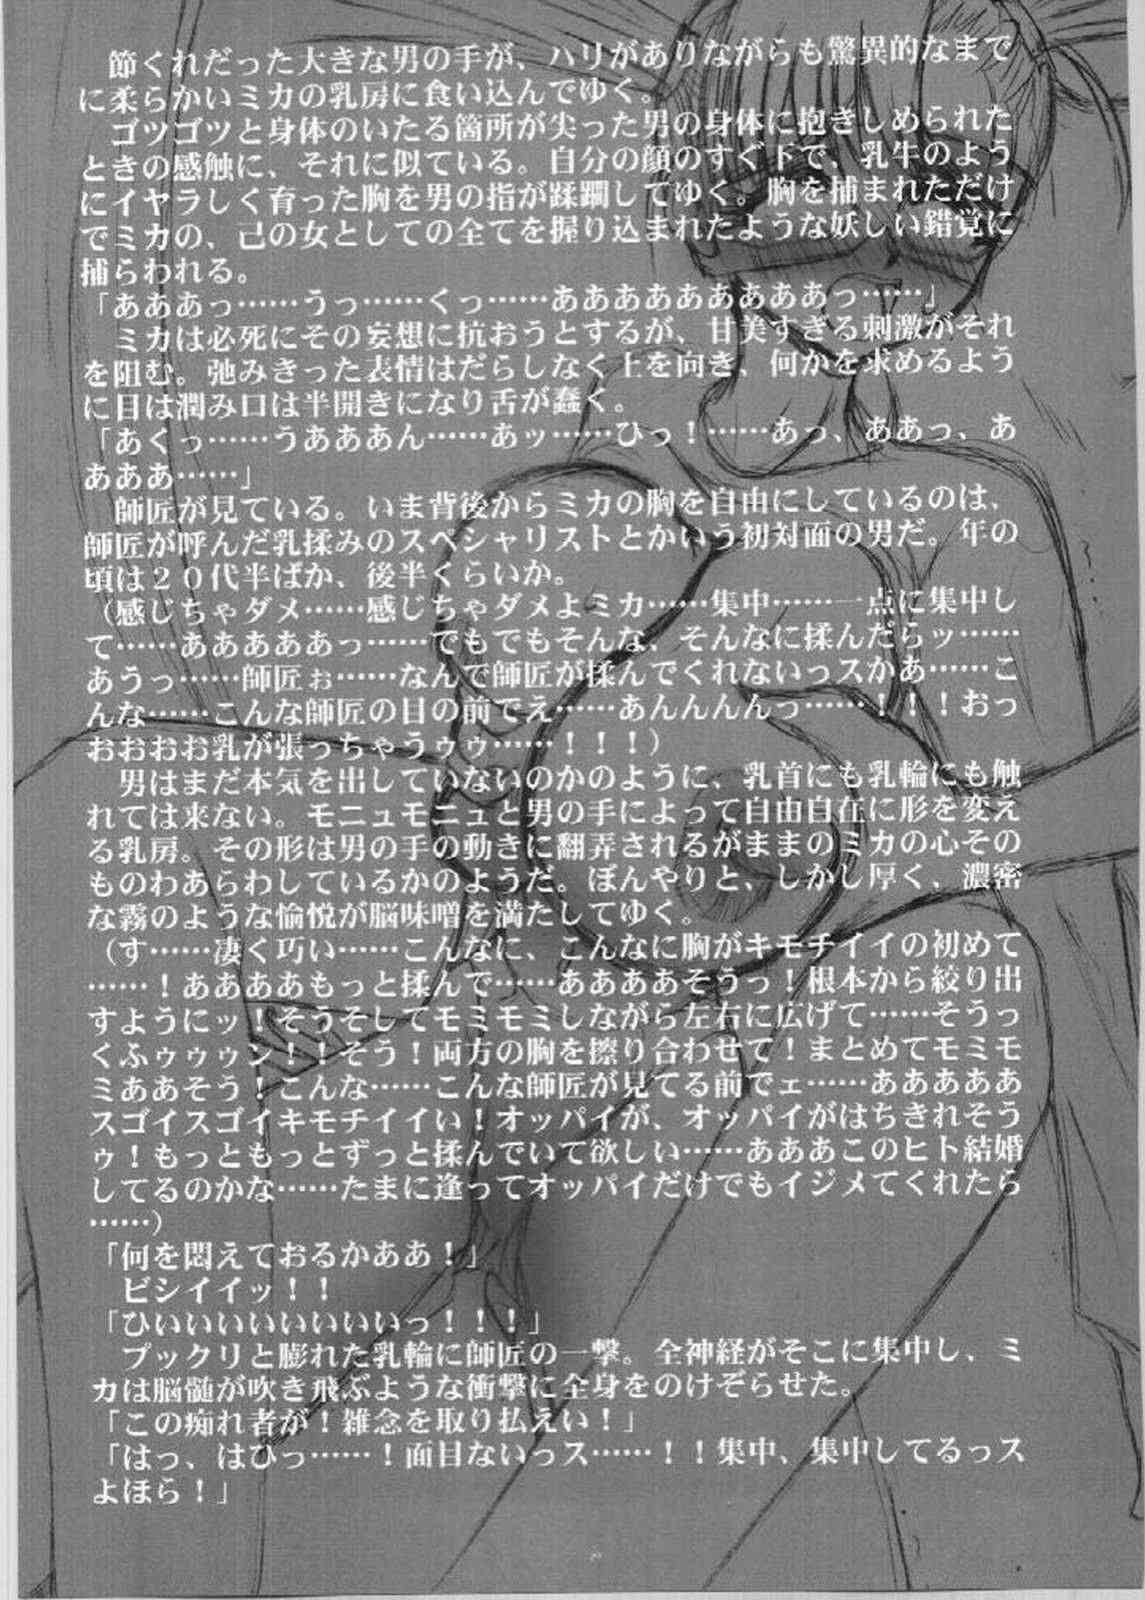 節くれだった大きな男の手が、ハリがありながらも驚異的なまで
に柔らかいミカの乳房に食い込んでゆく。
ゴツゴツと身体のいたる箇所が尖った男の身体に抱きしめられた
ときの感触に、それに似ている。自分の顔のすぐ下で、乳牛のよう
にイヤラしく育った胸を男の指が蹂躙してゆく。胸を捕まれただけ
でミカの、己の女としての全てを握り込まれたような妖しい錯覚に
捕らわれる。
「あああっ……うっ……くっ……あああああああああっ……」
ミカは必死にその妄想に抗おうとするが、甘美すぎる刺激がそれ
を阻む。弛みきった表情はだらしなく上を向き、何かを求めるよう
に目は潤み口は半開きになり舌が蠢く。
「あくっ……うあああん……あッ……ひっ！……あっ、ああっ、あ
あああ……」
師匠が見ている。いま背後からミカの胸を自由にしているのは、
師匠が呼んだ乳揉みのスペシャリストとかいう初対面の男だ。年の
頃は２０代半ばか、後半くらいか。
（感じちゃダメ……感じちゃダメよミカ……集中……一点に集中し
て……あああああっ……でもでもそんな、そんなに揉んだらッ……
あうっ……師匠ぉ……なんで師匠が揉んでくれないっスかあ……こ
んな……こんな師匠の目の前でえ……あんんんっ……！！！おっ
おおおお乳が張っちゃうゥゥ……！！！）
男はまだ本気を出していないのかのように、乳首にも乳輪にも触
れては来ない。モニュモニュと男の手によって自由自在に形を変え
る乳房。その形は男の手の動きに翻弄されるがままのミカの心その
ものわあらわしているかのようだ。ぼんやりと、しかし厚く、濃密
な霧のような愉悦が脳味噌を満たしてゆく。
（す……凄く巧い……こんなに、こんなに胸がキモチイイの初めて
……！ああああもっと揉んで……ああああそうっ！根本から絞り出
すようにッ！そうそしてモミモミしながら左右に広げて……そうっ
くふゥゥゥン！！そう！両方の胸を擦り合わせて！まとめてモミモ
ミああそう！こんな……こんな師匠が見てる前でェ……あああああ
スゴイスゴイキモチイイい！オッパイが、オッパイがはちきれそう
ゥ！もっともっとずっと揉んでいて欲しい……あああこのヒト結婚
してるのかな……たまに逢ってオッパイだけでもイジメてくれたら
……）
「何を悶えておるかああ！」
ビシイイッ！！
「ひいいいいいいいいっ！！！」
プックリと膨れた乳輪に師匠の一撃。全神経がそこに集中し、ミ
カは脳髄が吹き飛ぶような衝撃に全身をのけぞらせた。
「この痴れ者が！雑念を取り払えい！」
「はっ、はひっ……！面目ないっス……！！集中、集中してるっス
よほら！」